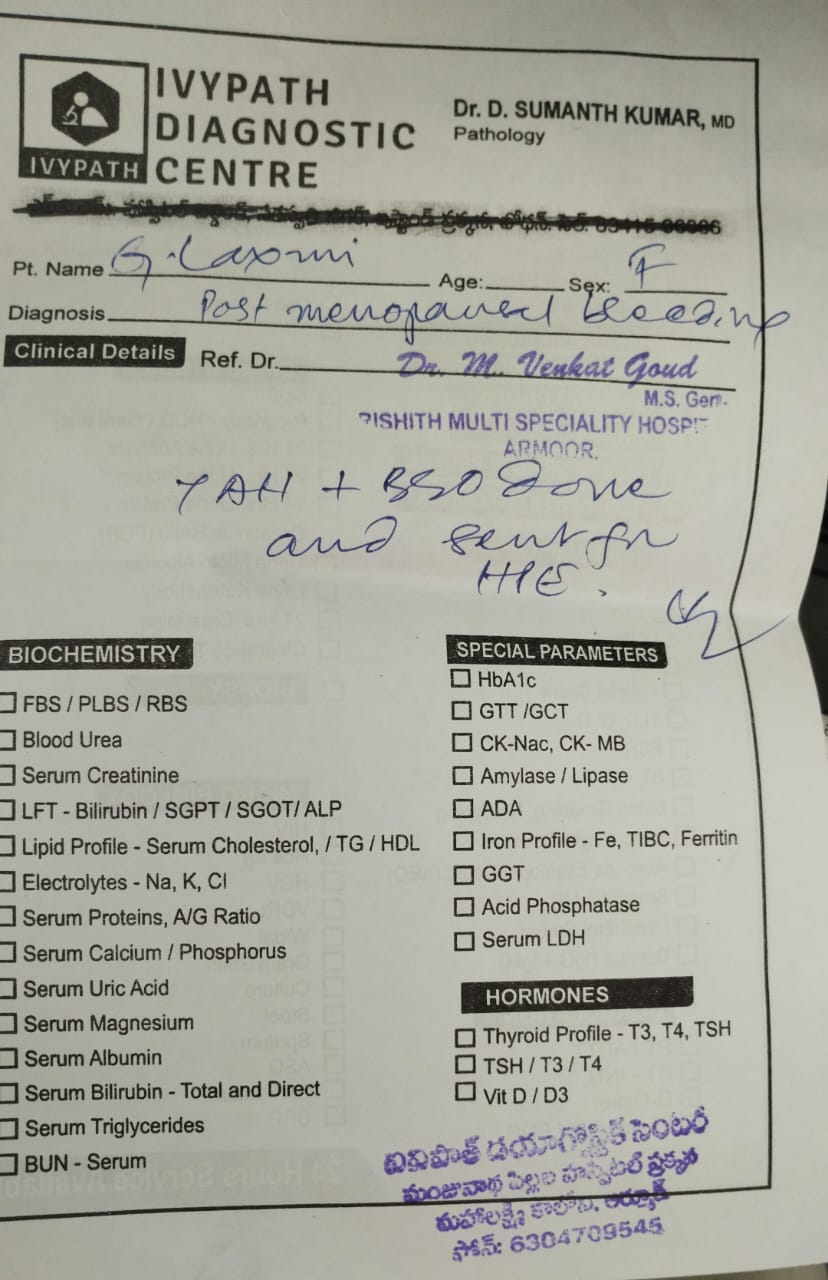 IVYPATH
DIAGNOSTIC
CENTRE
IVYPATH
Dr. D. SUMANTH KUMAR, MD
Pathology
Pt. Name G. Laxmi Age: Sex: F
Diagnosis Post menopausal bleeding
Clinical Details Ref. Dr. Dr. M. Venkat Goud
M.S. Gen.
RISHITH MULTI SPECIALITY HOSPIT
ARMOOR.
TAH + BSO done
and sent for
HPE.
BIOCHEMISTRY
FBS / PLBS / RBS
Blood Urea
Serum Creatinine
LFT - Bilirubin / SGPT / SGOT/ ALP
Lipid Profile - Serum Cholesterol, / TG / HDL
Electrolytes - Na, K, Cl
Serum Proteins, A/G Ratio
Serum Calcium / Phosphorus
Serum Uric Acid
Serum Magnesium
Serum Albumin
Serum Bilirubin - Total and Direct
Serum Triglycerides
BUN - Serum
SPECIAL PARAMETERS
HbA1c
GTT /GCT
CK-Nac, CK- MB
Amylase / Lipase
ADA
Iron Profile - Fe, TIBC, Ferritin
GGT
Acid Phosphatase
Serum LDH
HORMONES
Thyroid Profile - T3, T4, TSH
TSH / T3 / T4
Vit D / D3
ఐవిపాత్ డయాగ్నోస్టిక్ సెంటర్
మంజునాథ పిల్లల హాస్పిటల్ ప్రక్కన
మహాలక్ష్మి కాలోని, ఆర్మూర్
ఫోన్: 6304709545